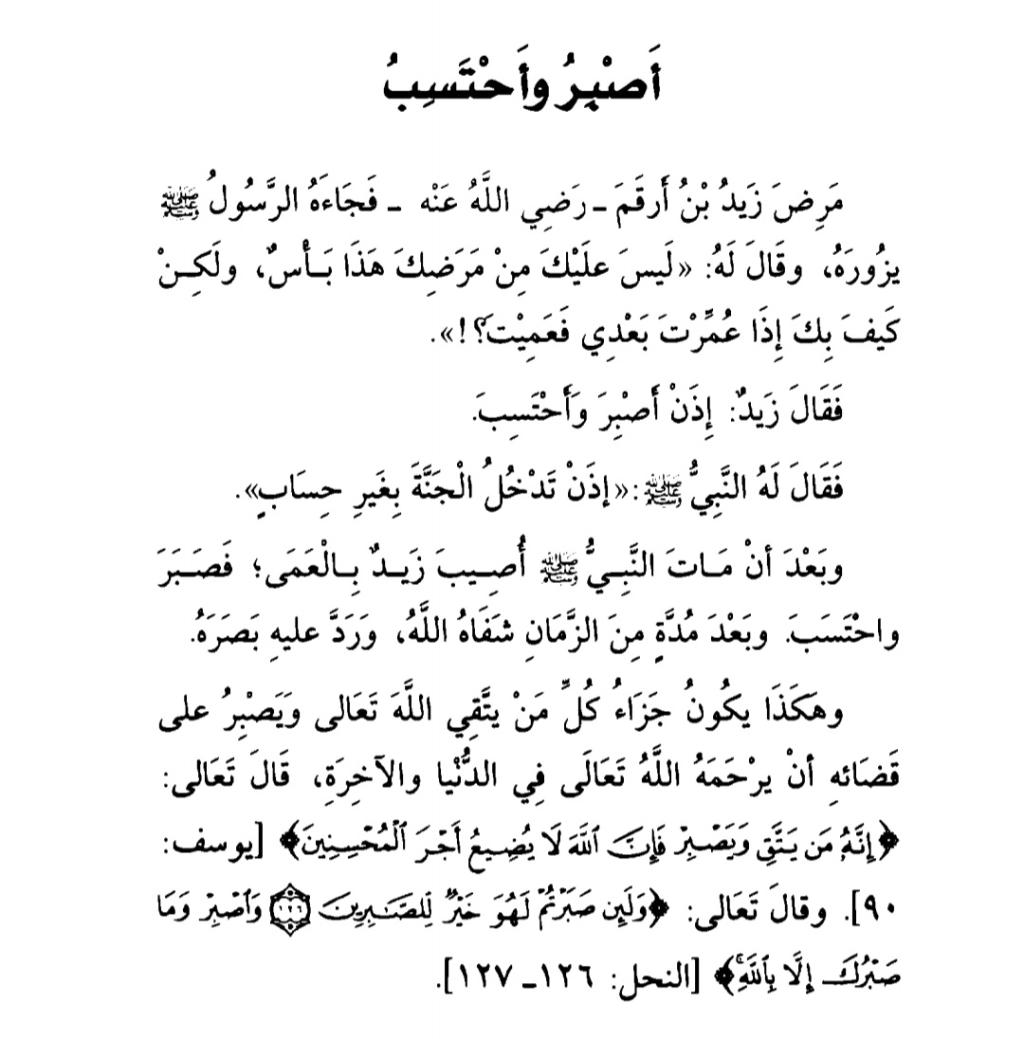 أَصْبِرُ وأَحْتَسِبُ
مَرِضَ زَيدُ بْنُ أَرقَمَ ـ رَضِي اللَّهُ عَنْه ـ فَجَاءَهُ الرَّسُولُ ﷺ
يزُورَهُ، وقَالَ لَهُ: «لَيسَ علَيْكَ مِنْ مَرَضِكَ هَذَا بَـأْسٌ، ولَكِـنْ
كَيفَ بِكَ إِذَا عُمِّرْتَ بَعْدِي فَعَمِيْتَ؟!».
فَقَالَ زَيدٌ: إِذَنْ أَصْبِرَ وَأَحْتَسِبَ.
فَقَالَ لَهُ النَّبِيُّ ﷺ: «إذَنْ تَدْخُلُ الْجَنَّةَ بِغَيرِ حِسَابٍ».
وبَعْدَ أنْ مَـاتَ النَّبِـيُّ ﷺ أُصِـيبَ زَيـدٌ بِـالْعَمَى؛ فَصَـبَرَ
واحْتَسَبَ. وبَعْدَ مُدَّةٍ مِنَ الزَّمَانِ شَفَاهُ اللَّهُ، ورَدَّ عليهِ بَصَرَهُ.
وهَكَذَا يكُونُ جَزَاءُ كُلِّ مَنْ يتَّقِي اللَّهَ تَعَالى وَيَصْبِرُ على
قَضَائهِ أنْ يرْحَمَهُ اللَّهُ تَعَالَى فِي الدُّنْيا والآخِرَةِ، قَالَ تَعَالى:
﴿إِنَّهُۥ مَن يَتَّقِ وَيَصْبِرْ فَإِنَّ ٱللَّهَ لَا يُضِيعُ أَجْرَ ٱلْمُحْسِنِينَ﴾ [يوسف:
٩٠]. وقالَ تَعَالى: ﴿وَلَئِن صَبَرْتُمْ لَهُوَ خَيْرٌ لِّلصَّـٰبِرِينَ ١٢٦ وَٱصْبِرْ وَمَا
صَبْرُكَ إِلَّا بِٱللَّهِۚ﴾ [النحل: ١٢٦ـ ١٢٧].